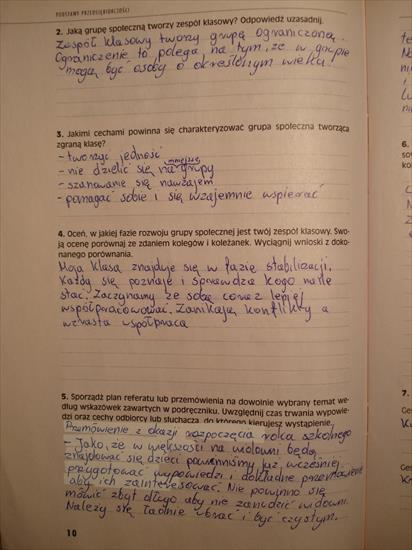 PODSTAWY PRZEDSIĘBIORCZOŚCI
2. Jaką grupę społeczną tworzy zespół klasowy? Odpowiedź uzasadnij.
Zespół klasowy tworzy grupę ograniczoną.
Ograniczenie to polega na tym, że w grupie
mogą być osoby o określonym wieku.
3. Jakimi cechami powinna się charakteryzować grupa społeczna tworząca
zgraną klasę?
- tworzyć jedność
- nie dzielić się na mniejsze grupy
- szanowanie się nawzajem
- pomagać sobie i się wzajemnie wspierać
4. Oceń, w jakiej fazie rozwoju grupy społecznej jest twój zespół klasowy. Swo-
ją ocenę porównaj ze zdaniem kolegów i koleżanek. Wyciągnij wnioski z doko-
nanego porównania.
Moja klasa znajduje się w fazie stabilizacji.
Każdy się poznaje i sprawdza kogo na ile
stać. Zaczynamy ze sobą coraz lepiej
współpracować. Zanikają konflikty a
wzrasta współpraca
5. Sporządź plan referatu lub przemówienia na dowolnie wybrany temat we-
dług wskazówek zawartych w podręczniku. Uwzględnij czas trwania wypowie-
dzi oraz cechy odbiorcy lub słuchacza, do którego kierujesz wystąpienie.
Przemówienie z okazji rozpoczęcia roku szkolnego
- Jako, że w większości na widowni będą
znajdować się dzieci powinniśmy już wcześniej
przygotować wypowiedzi i dokładne przemówienie
aby ich zainteresować. Nie powinno się
mówić zbyt długo aby nie zanudzić widowni.
Należy się ładnie ubrać i być czystym.
10
6.
7.